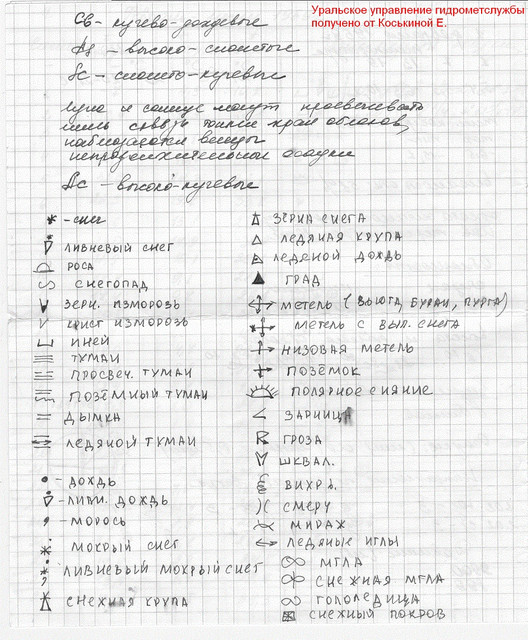 Уральское управление гидрометслужбы
получено от Коськиной Е.
Cb - кучево-дождевые
As - высоко-слоистые
Sc - слоисто-кучевые
Луна и солнце могут просвечивать
лишь сквозь тонкие края облаков,
наблюдаются
непродолжительные осадки
Ac - высоко-кучевые
- снег
ЛИВНЕВЫЙ СНЕГ
РОСА
СНЕГОПАД
ЗЕРН. ИЗМОРОЗЬ
КРИСТ ИЗМОРОЗЬ
ИНЕЙ
ТУМАН
ПРОСВЕЧ. ТУМАН
ПОЗЁМНЫЙ ТУМАН
ДЫМКА
ЛЕДЯНОЙ ТУМАН
- ДОЖДЬ
- ЛИВН. ДОЖДЬ
- МОРОСЬ
МОКРЫЙ СНЕГ
ЛИВНЕВЫЙ МОКРЫЙ СНЕГ
СНЕЖНАЯ КРУПА
ЗЁРНА СНЕГА
ЛЕДЯНАЯ КРУПА
ЛЕДЕНОЙ ДОЖДЬ
ГРАД
МЕТЕЛЬ (ВЬЮГА, БУРАН, ПУРГА)
МЕТЕЛЬ С ВЫП. СНЕГА
НИЗОВАЯ МЕТЕЛЬ
ПОЗЁМОК
ПОЛЯРНОЕ СИЯНИЕ
ЗАРНИЦА
ГРОЗА
ШКВАЛ.
ВИХРЬ.
СМЕРЧ
МИРАЖ
ЛЕДЯНЫЕ ИГЛЫ
МГЛА
СНЕЖНАЯ МГЛА
ГОЛОЛЕДИЦА
СНЕЖНЫЙ ПОКРОВ